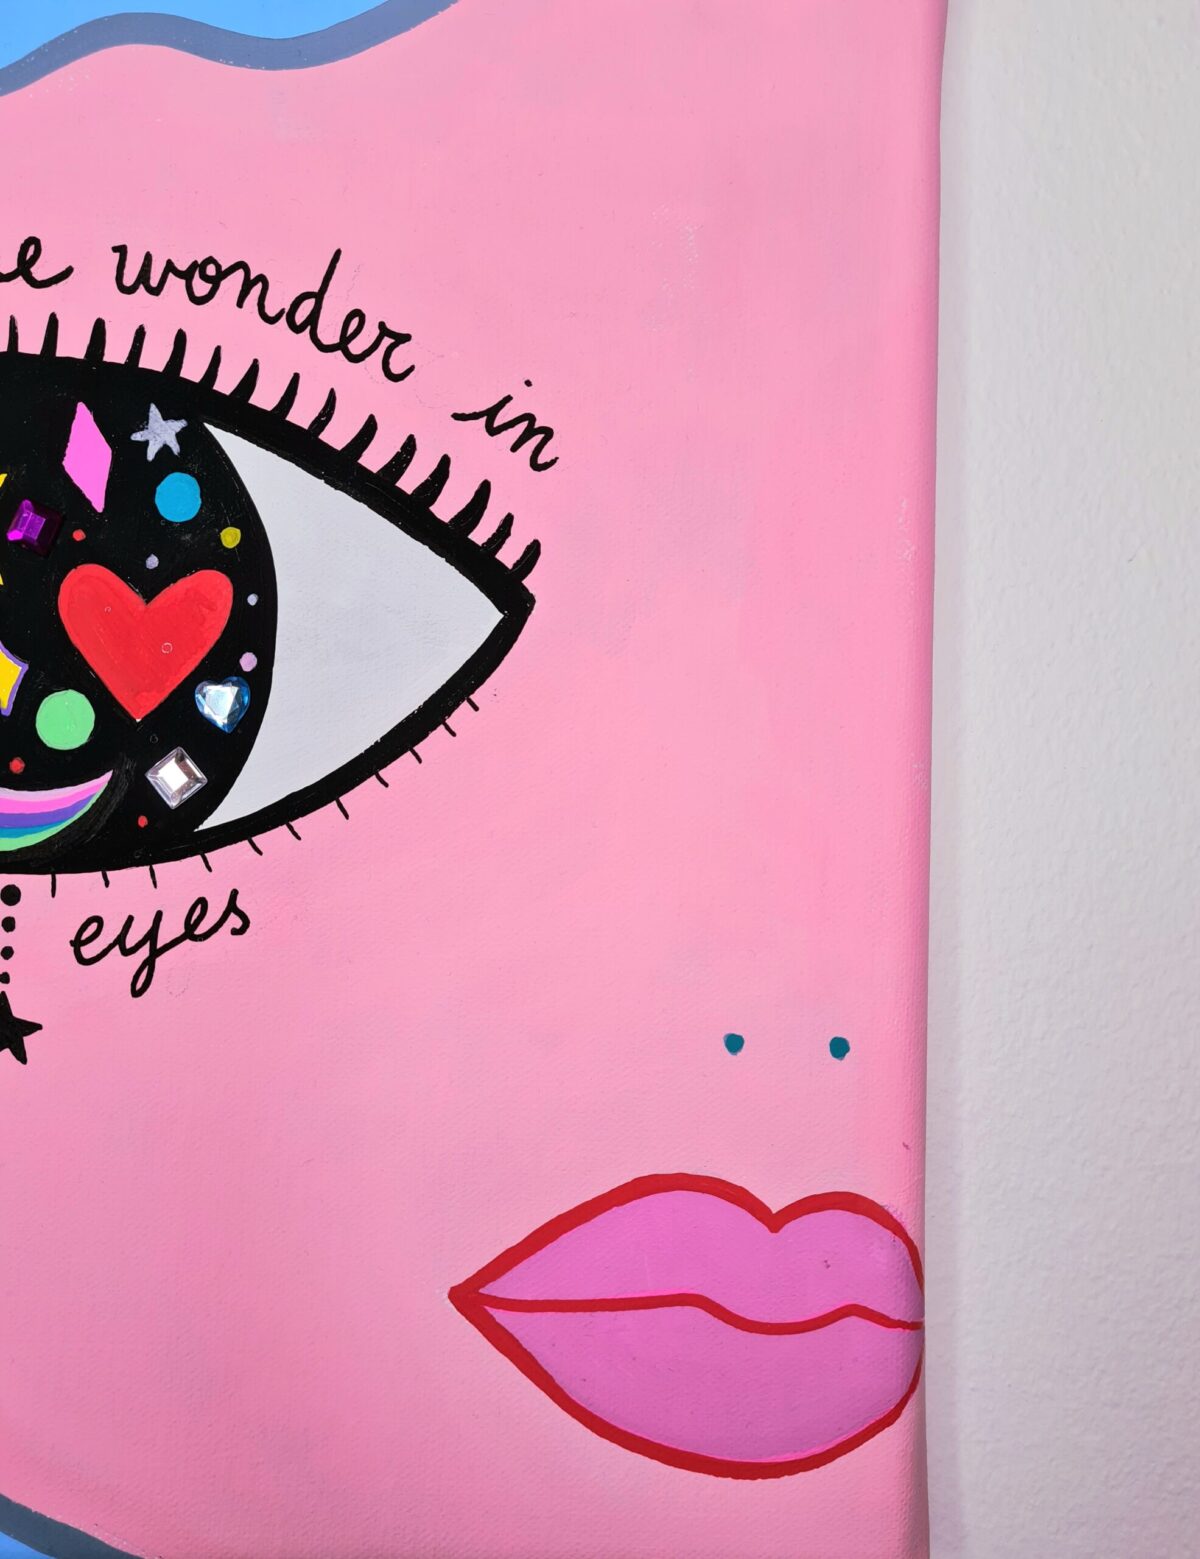 wonder in
eyes